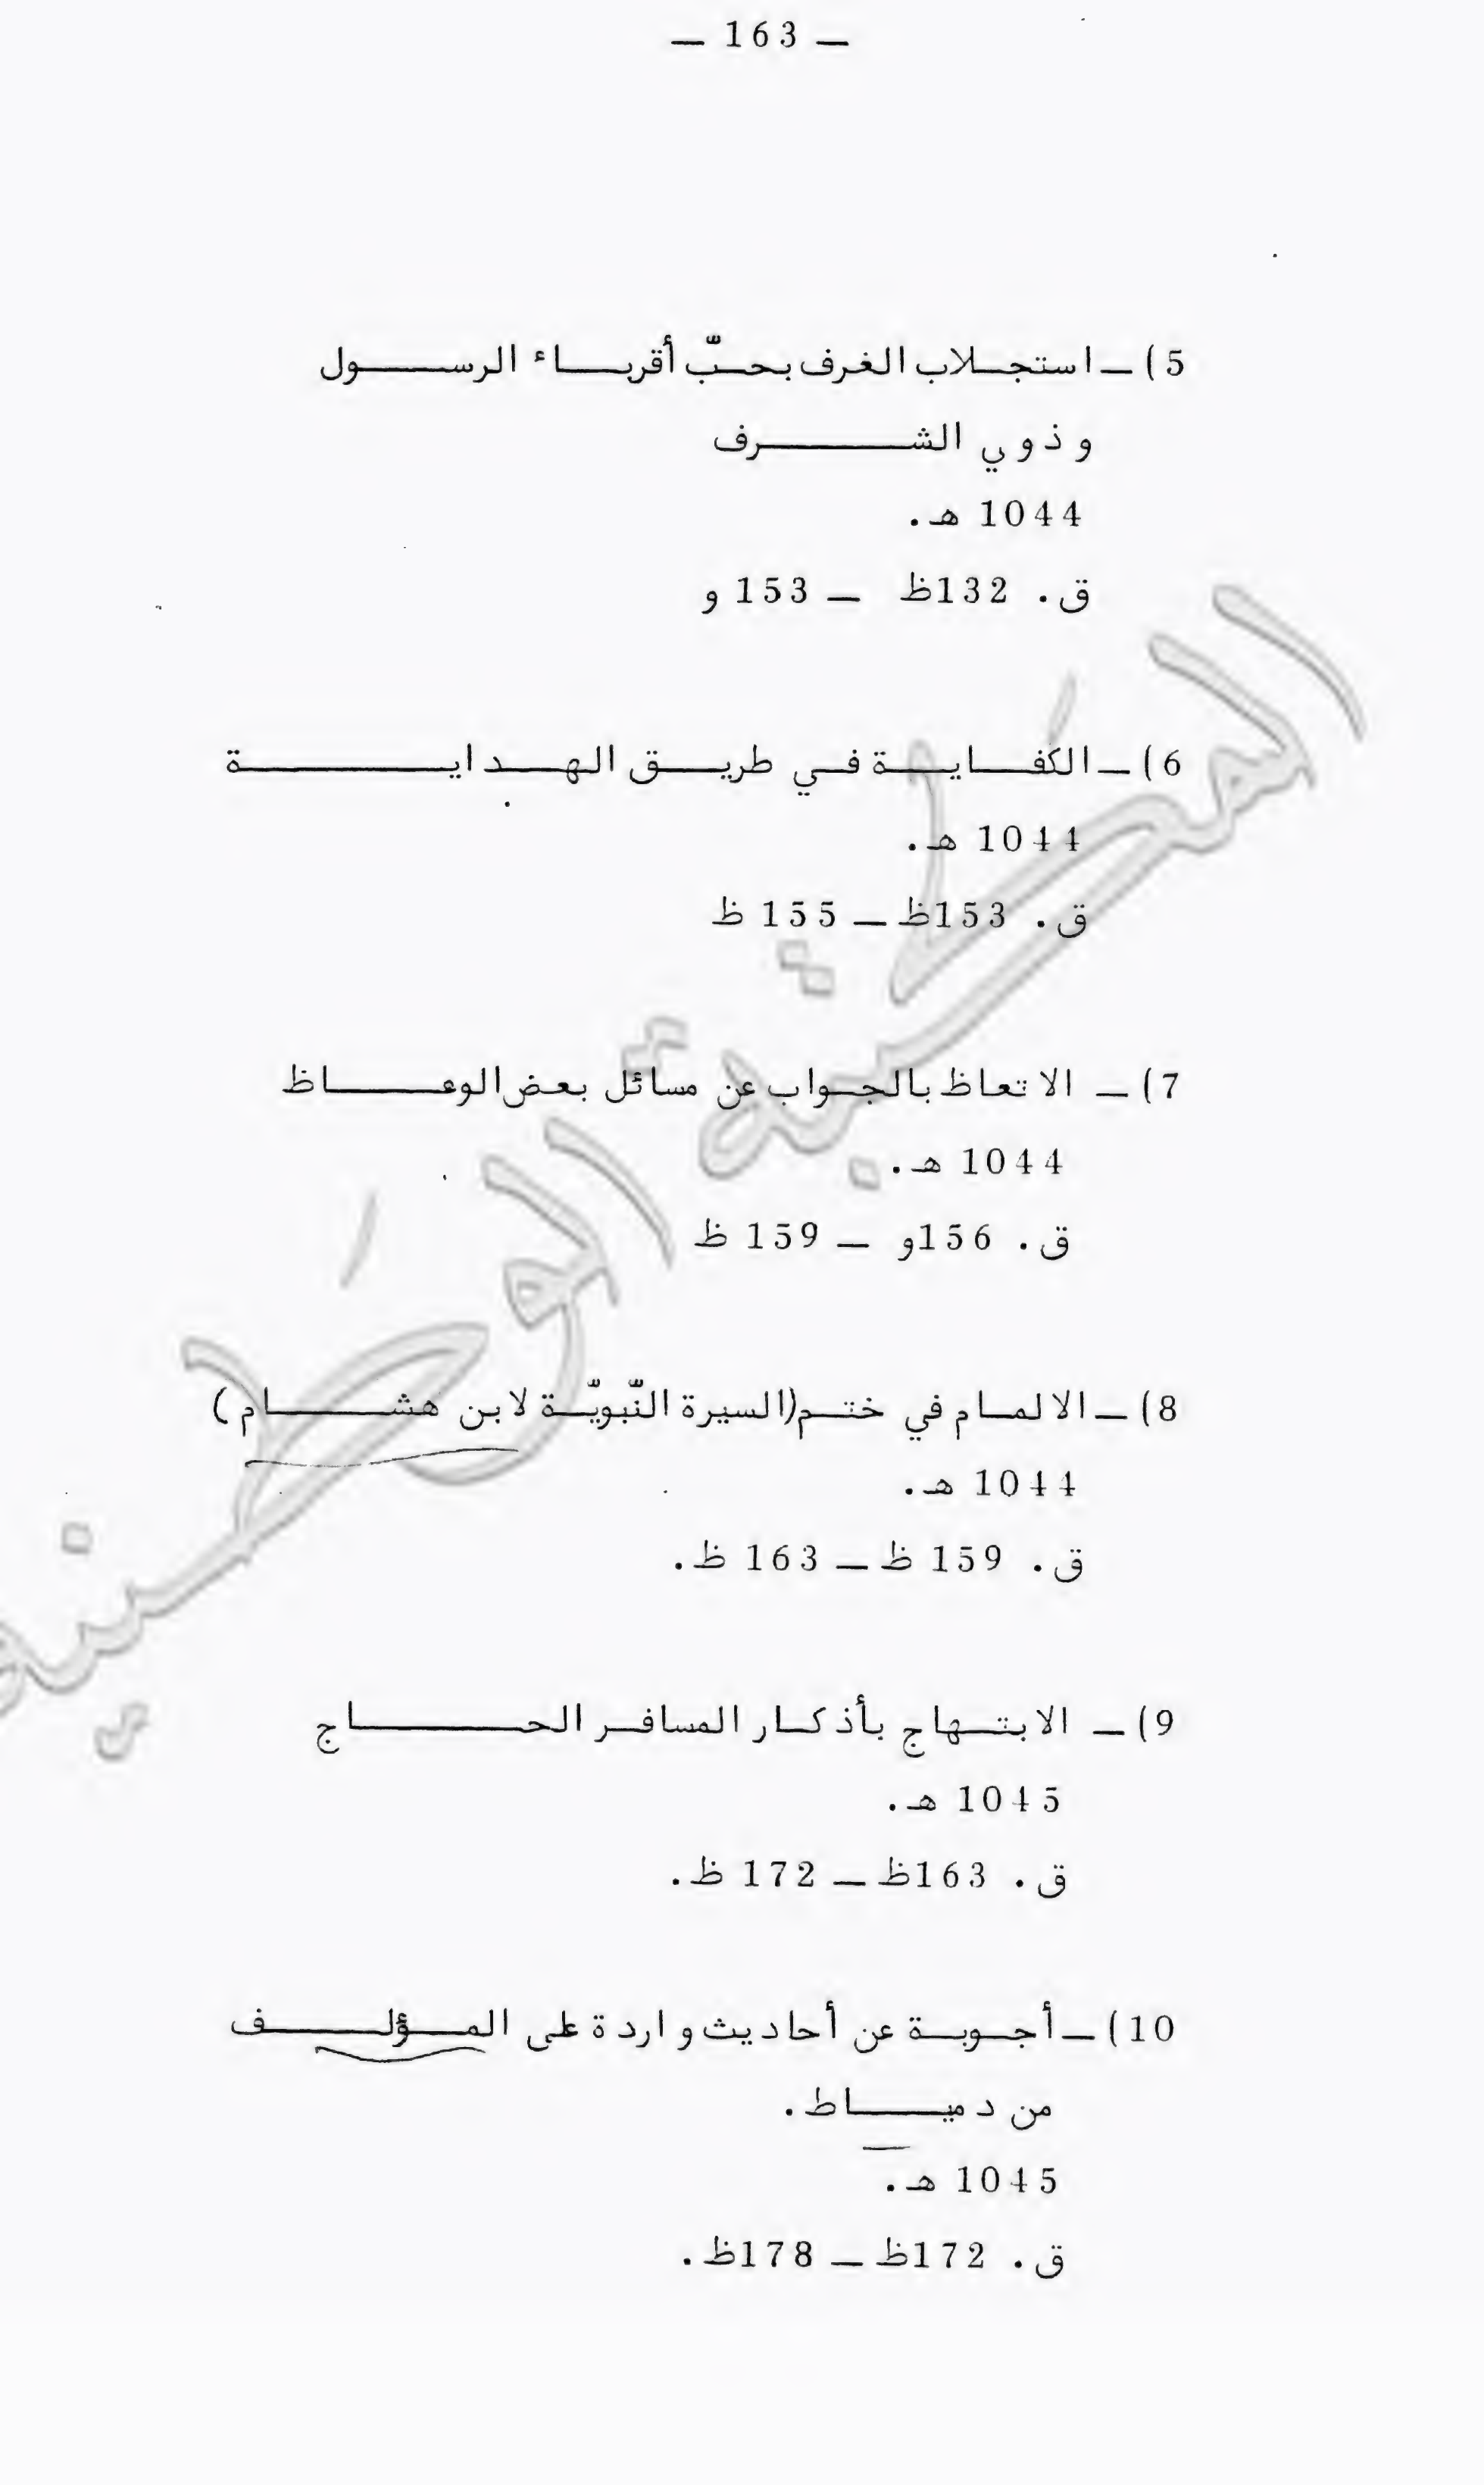 — 163 —
5) — استجلاب الغرف بحبّ أقرباء الرسول
وذوي الشرف
1044 هـ.
ق. 132ظ — 153 و
6) — الكفاية في طريق الهداية
1044 هـ.
ق. 153ظ — 155 ظ
7) — الاتعاظ بالجواب عن مسائل بعض الوعاظ
1044 هـ.
ق. 156و — 159 ظ
8) — الالمام في ختم (السيرة النّبويّة لابن هشام)
1044 هـ.
ق. 159 ظ — 163 ظ.
9) — الابتهاج بأذكار المسافر الحاج
1045 هـ.
ق. 163ظ — 172 ظ.
10) — أجوبة عن أحاديث واردة على المؤلف
من دمياط.
1045 هـ.
ق. 172ظ — 178ظ.
المكتبة الوطنية